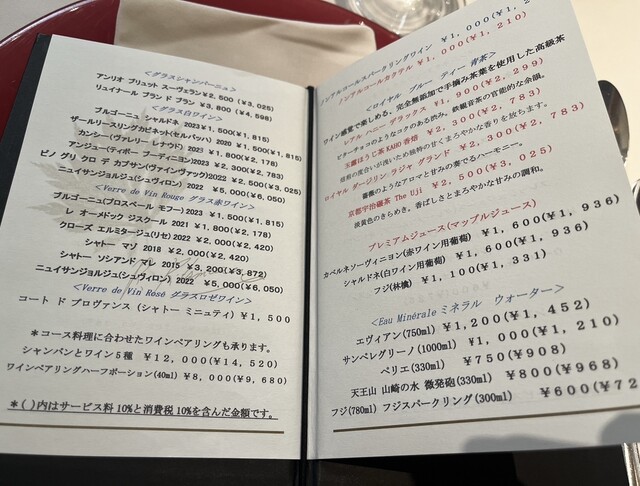 <グラスシャンパーニュ>
アンリオ ブリュット スーヴェラン¥2,500(¥3,025)
リュイナール ブラン ド ブラン ¥3,800(¥4,598)
<グラス白ワイン>
ブルゴーニュ シャルドネ 2023¥1,500(¥1,815)
ザールリースリングカビネット(セルバッハ) 2020 ¥1,500(¥1,815)
カンシー(ヴァレリー レナウド) 2023 ¥1,800(¥2,178)
アンジュー(ティボー ブーディニヨン)2023 ¥2,300(¥2,783)
ピノ グリ クロ デ カプサン(ヴァインヴァック)2022¥2,500(¥3,025)
ニュイサンジョルジュ(シュヴィロン) 2022 ¥5,000(¥6,050)
<Verre de Vin Rouge グラス赤ワイン>
ブルゴーニュ(プロスペール モフー)2023 ¥1,500(¥1,815)
レ オーメドック ジスクール 2021 ¥1,800(¥2,178)
クローズ エルミタージュ(リセ) 2022 ¥2,000(¥2,420)
シャトー マソ 2018 ¥2,000(¥2,420)
シャトー ソシアンド マレ 2015 ¥3,200(¥3,872)
ニュイサンジョルジュ(シュヴィロン) 2022 ¥5,000(¥6,050)
<Verre de Vin Rosé グラスロゼワイン>
コート ド プロヴァンス (シャトー ミニュティ) ¥1,500
*コース料理に合わせたワインペアリングも承ります。
シャンパンとワイン5種 ¥12,000(¥14,520)
ワインペアリングハーフポーション(40ml) ¥8,000(¥9,680)
*( )内はサービス料10%と消費税10%を含んだ金額です。
ノンアルコールスパークリングワイン ¥1,000(¥1,210)
ノンアルコールカクテル ¥1,000(¥1,210)
<ロイヤル ブルー ティー 青茶>
ワイン感覚で楽しめる、完全無添加で手摘み茶葉を使用した高級茶
レブル ハニー デラックス ¥1,900(¥2,299)
ビターチョコのようなコクのある渋み、鉄観音茶の官能的な余韻。
玉露ほうじ茶 KAHO 香焙 ¥2,300(¥2,783)
焙煎の度合いが浅いため独特の甘くまろやかな香りを放ちます。
ロイヤル ダージリン ラジャ グランド ¥2,300(¥2,783)
薔薇のようなアロマと甘みの奏でるハーモニー。
京都宇治碾茶 The Uji ¥2,500(¥3,025)
淡黄色のきらめき。香ばしさとまろやかな甘みの調和。
プレミアムジュース(マップルジュース)
カベルネソーヴィニヨン(赤ワイン用葡萄) ¥1,600(¥1,936)
シャルドネ(白ワイン用葡萄) ¥1,600(¥1,936)
フジ(林檎) ¥1,100(¥1,331)
<Eau Minérale ミネラル ウォーター>
エヴィアン(750ml) ¥1,200(¥1,452)
サンペレグリーノ(1000ml) ¥1,000(¥1,210)
ペリエ(330ml) ¥750(¥908)
天王山 山崎の水 微発砲(330ml) ¥800(¥968)
フジ(780ml) フジスパークリング(300ml) ¥600(¥72